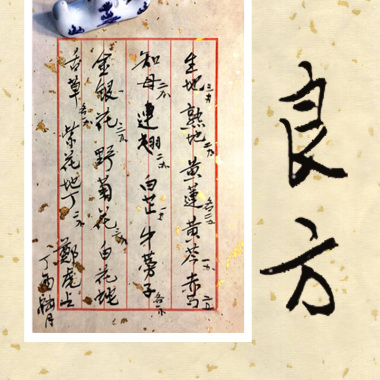 良方
生地 熟地 黄蓮 黄芩 赤芍
知母 連翹 白芷 牛蒡子
金銀花 野菊花 白花蛇
舌草 紫花地丁 鄭虎占
丁酉秋月